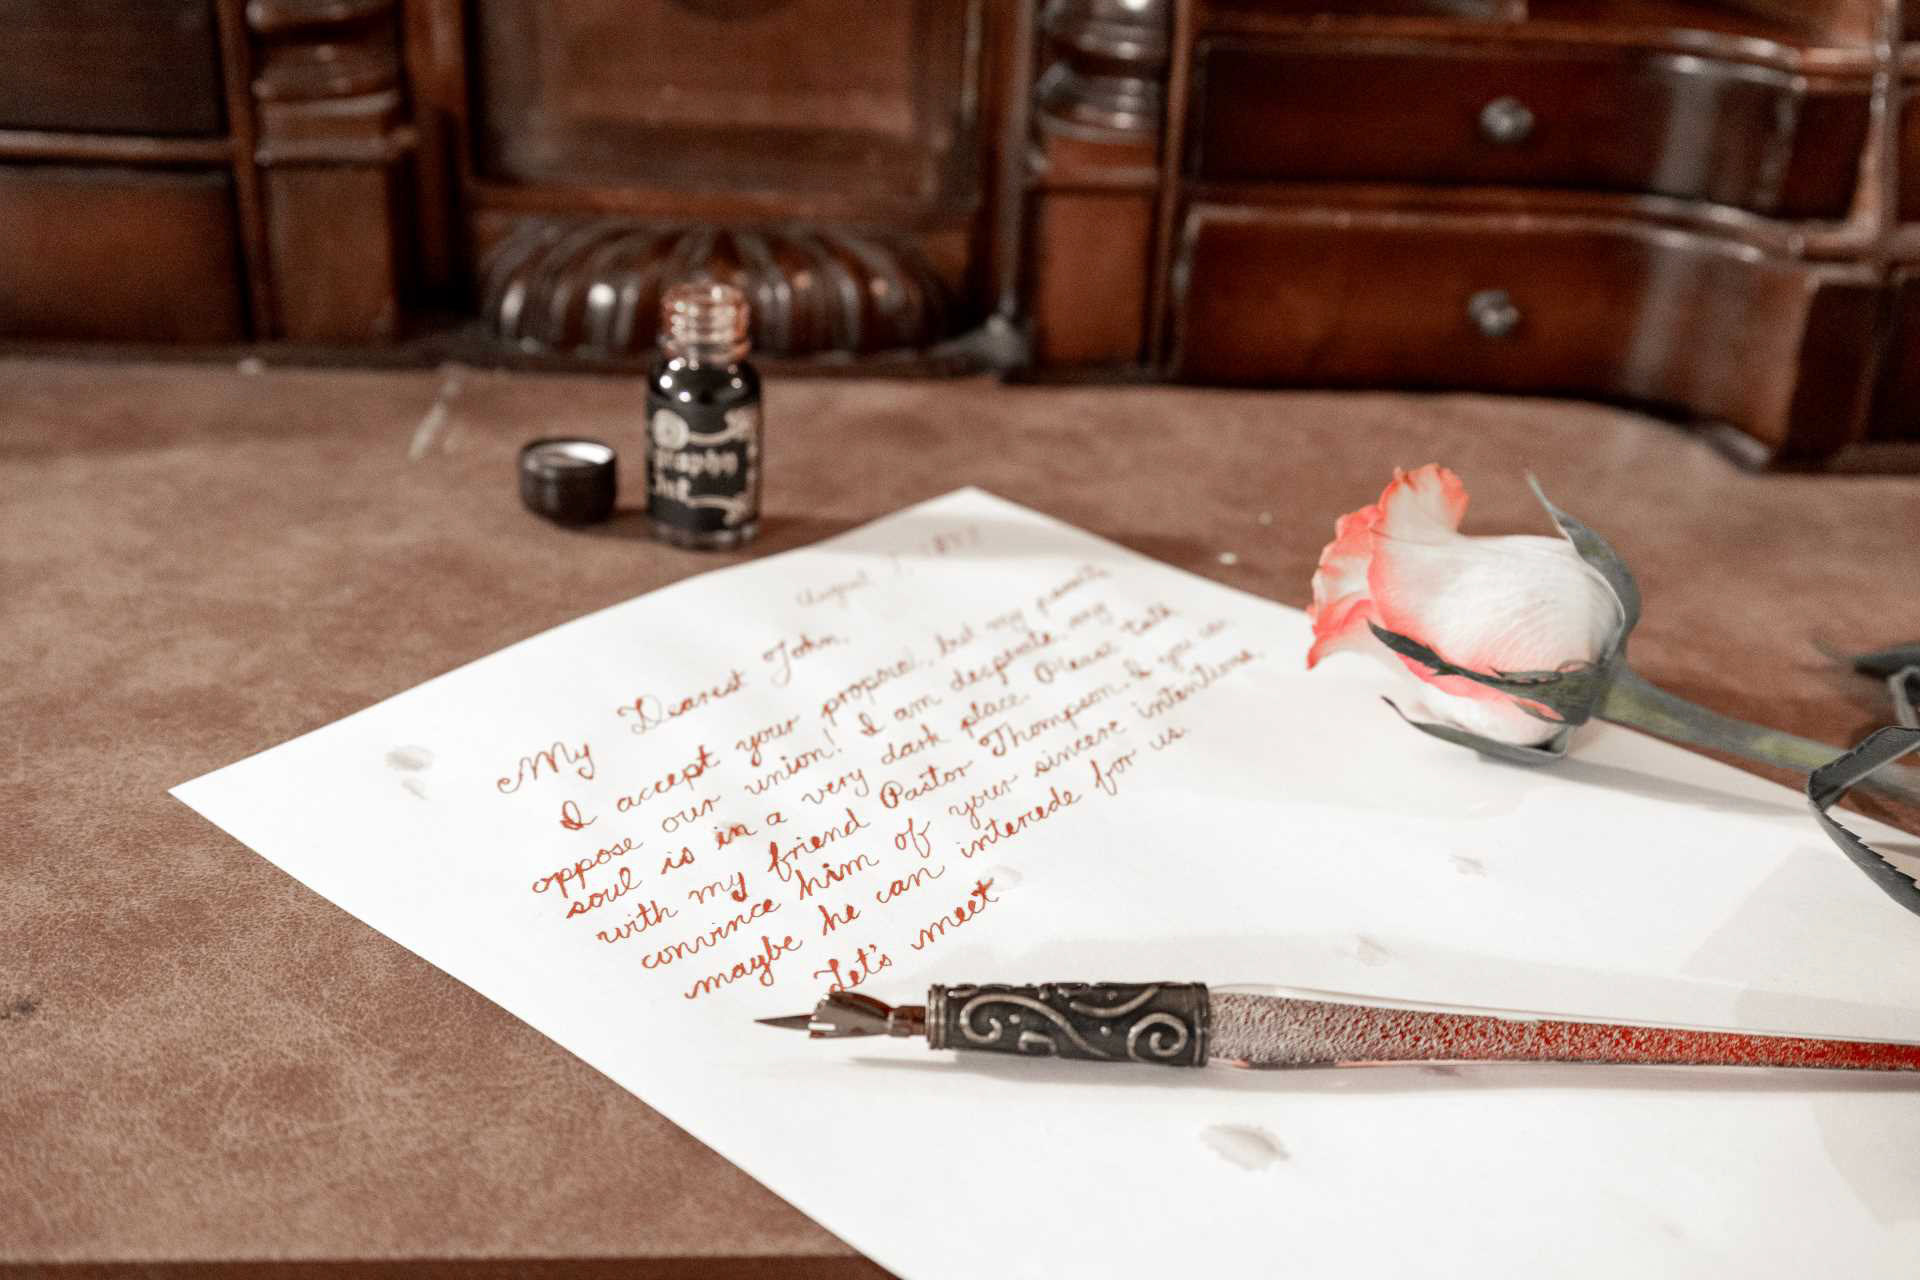 August
My Dearest John,
I accept your proposal, but my parents
oppose our union! I am desperate, my
soul is in a very dark place. Please talk
with my friend Pastor Thompson, & if you can
convince him of your sincere intentions,
maybe he can intercede for us.
Let's meet
Ink